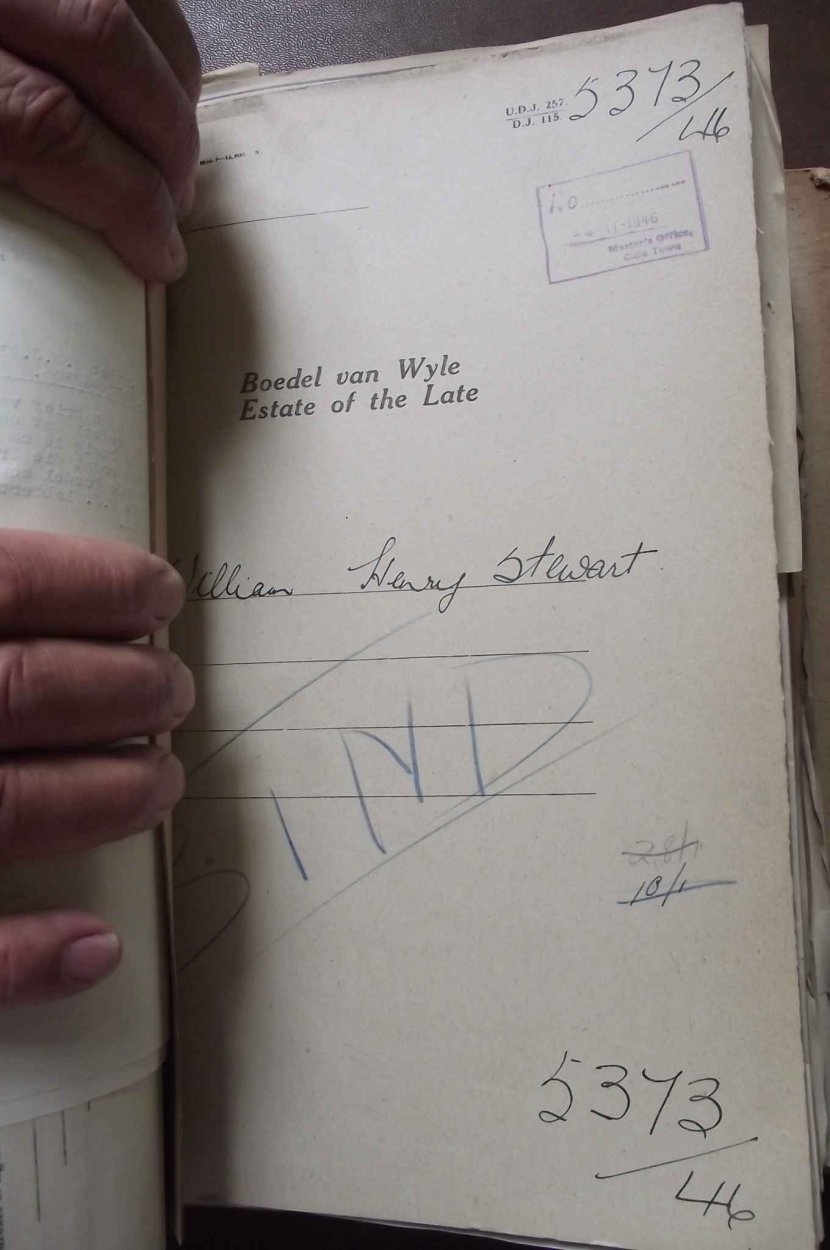 U.D.J. 257.
D.J. 115.
5373/46
-4-11-1946
Master's Office,
Cape Town
Boedel van Wyle
Estate of the Late
William Henry Stewart
IND
28/1
18/1
5373
46